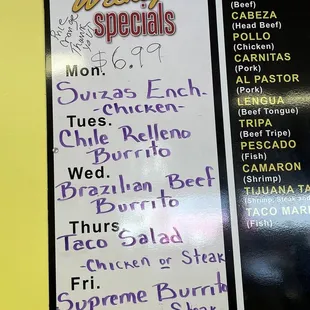 Specials
$6.99
Mon.
Suizas Ench.
-Chicken-
Tues.
Chile Relleno
Burrito
Wed.
Brazilian Beef
Burrito
Thurs
Taco Salad
-Chicken or Steak
Fri.
Supreme Burrito
Steak
(Beef)
CABEZA
(Head Beef)
POLLO
(Chicken)
CARNITAS
(Pork)
AL PASTOR
(Pork)
LENGUA
(Beef Tongue)
TRIPA
(Beef Tripe)
PESCADO
(Fish)
CAMARON
(Shrimp)
TIJUANA TA
(Shrimp, Steak and
TACO MARI
(Fish)